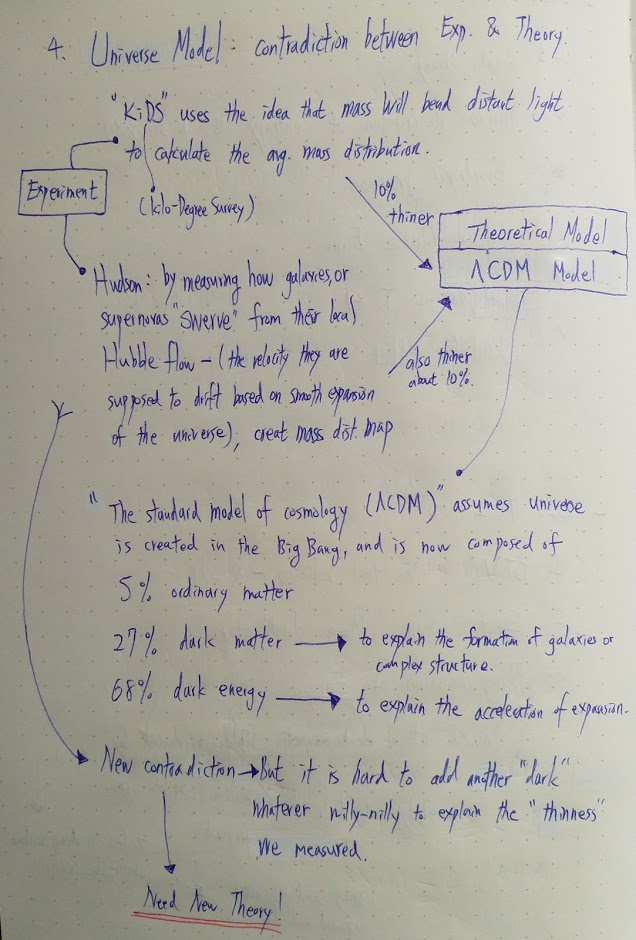 4. Universe Model: contradiction between Exp. & Theory.
"KiDS" uses the idea that mass will bend distant light
to calculate the avg. mass distribution.
Experiment
(kilo-Degree Survey)
10%
thiner
Theoretical Model
ΛCDM Model
Hudson: by measuring how galaxies, or
supernovas "swerve" from their local
Hubble flow - (the velocity they are
supposed to drift based on smooth expansion
of the universe), creat mass dist. map
also thiner
about 10%.
"The standard model of cosmology (ΛCDM)" assumes universe
is created in the Big Bang, and is now composed of
5% ordinary matter
27% dark matter → to explain the formation of galaxies or
complex structure.
68% dark energy → to explain the acceleration of expansion.
New contradiction → But it is hard to add another "dark"
whatever nilly-nilly to explain the "thinness"
we measured.
Need New Theory!